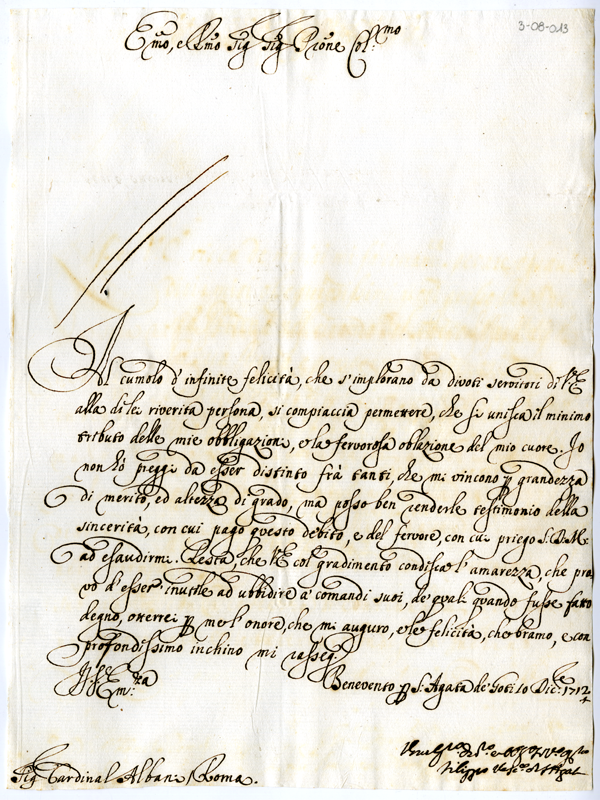 3-08-013
Emo, e Rmo Sig Sig Prone Col:mo
Al cumolo d'infinite felicità, che s'implorano da divoti servitori di V.E
alla di lei riverita persona, si compiaccia permettere, che si unisca il minimo
tributo delle mie obbligazioni, e la fervorosa oblazione del mio cuore. Io
non hò preggi da esser distinto frà tanti, che mi vincono p grandezza
di merito, ed altezza di grado, ma posso ben renderle testimonio della
sincerità, con cui pago questo debito, e del fervore, con cui priego S. D. M:
ad esaudirmi. Resta, che V.E col gradimento condisca l'amarezza, che pro
vo d'esser inutile ad ubbidire a' comandi suoi, de' quali quando fusse fatto
degno, otterrei p me l'onore, che mi auguro, e le felicità, che bramo, e con
profondissimo inchino mi rasseg
Benevento p S. Agata de' Goti 10 Dic.e 1712
Filippo
Sig Cardinal Albani Roma.